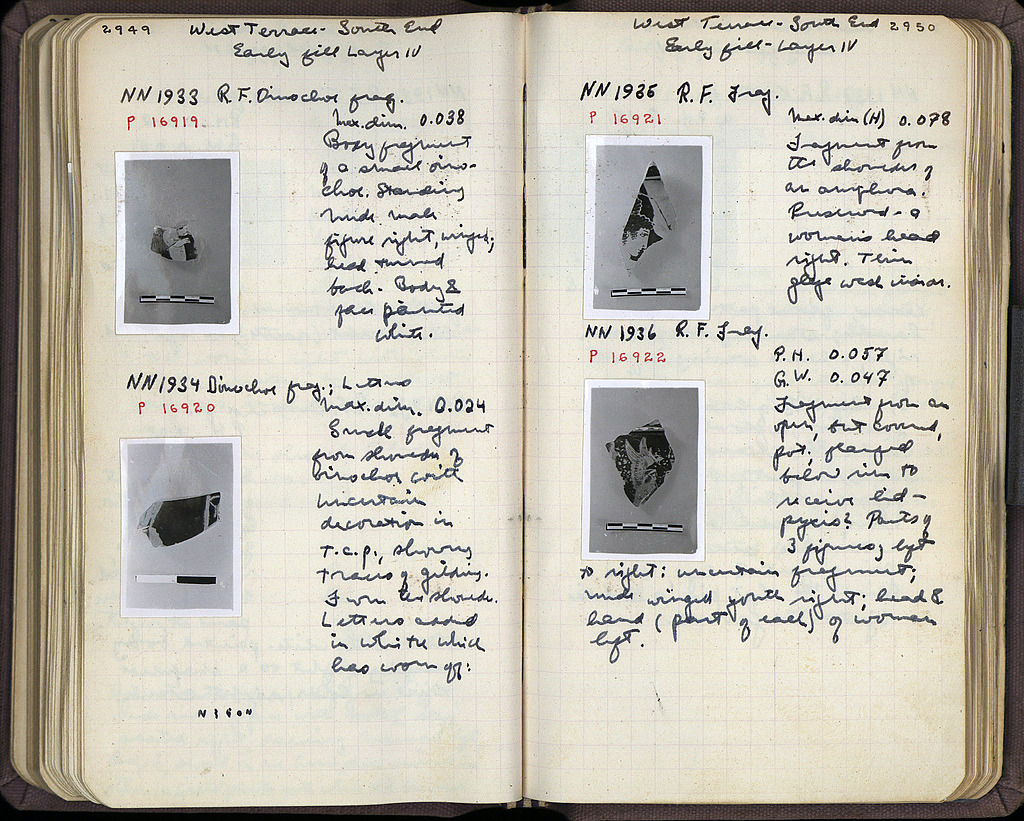 2949
West Terrace - South End
Early fill Layer IV
NN 1933 R.F. Oinochoe frag.
P 16919
Max. dim. 0.038
Body fragment
of a small oino-
choe. Standing
nude male
figure right, winged;
head turned
back. Body &
face painted
white.
NN 1934 Oinochoe frag.; Letters
P 16920
Max. dim. 0.024
Small fragment
from shoulder of
oinochoe with
uncertain
decoration in
r.c.p., showing
traces of gilding.
From the shoulder.
Letters added
in white which
has worn off:
West Terrace - South End 2950
Early fill - Layer IV
NN 1935 R.F. Frag.
P 16921
Max. dim (H) 0.078
Fragment from
the shoulder of
an amphora.
Preserved - a
woman's head
right. Thin
glaze wash inside.
NN 1936 R.F. Frag.
P 16922
P.H. 0.057
G.W. 0.047
Fragment from an
open, but covered,
pot; flanged
below rim to
receive lid -
pyxis? Parts of
3 figures, left
to right: uncertain fragment;
nude winged youth right; head &
hand (part of each) of woman
left.